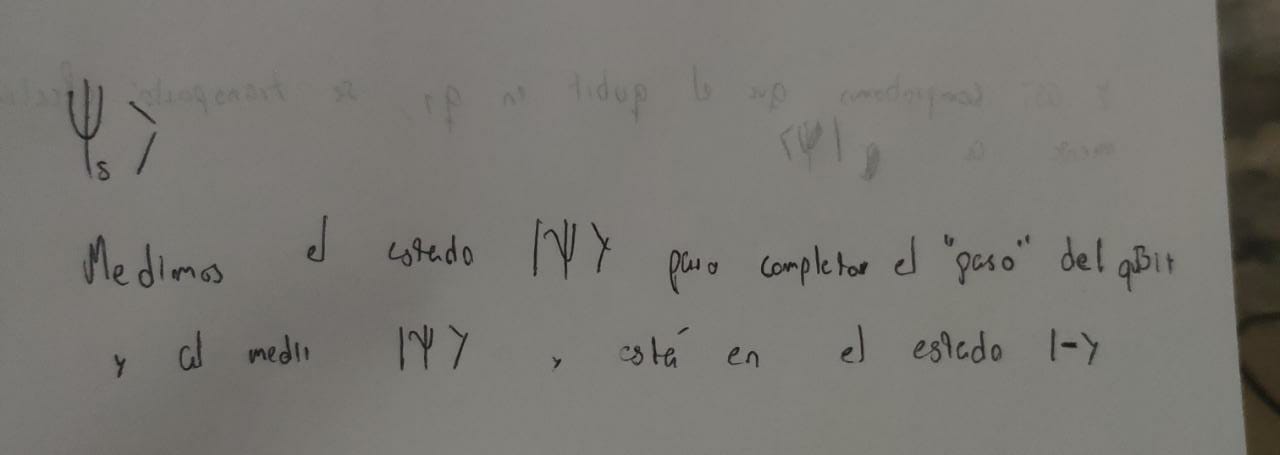 Ψs⟩
Medimos el estado |Ψ⟩ para completar el "paso" del qBit
y al medir |Ψ⟩, está en el estado |-⟩